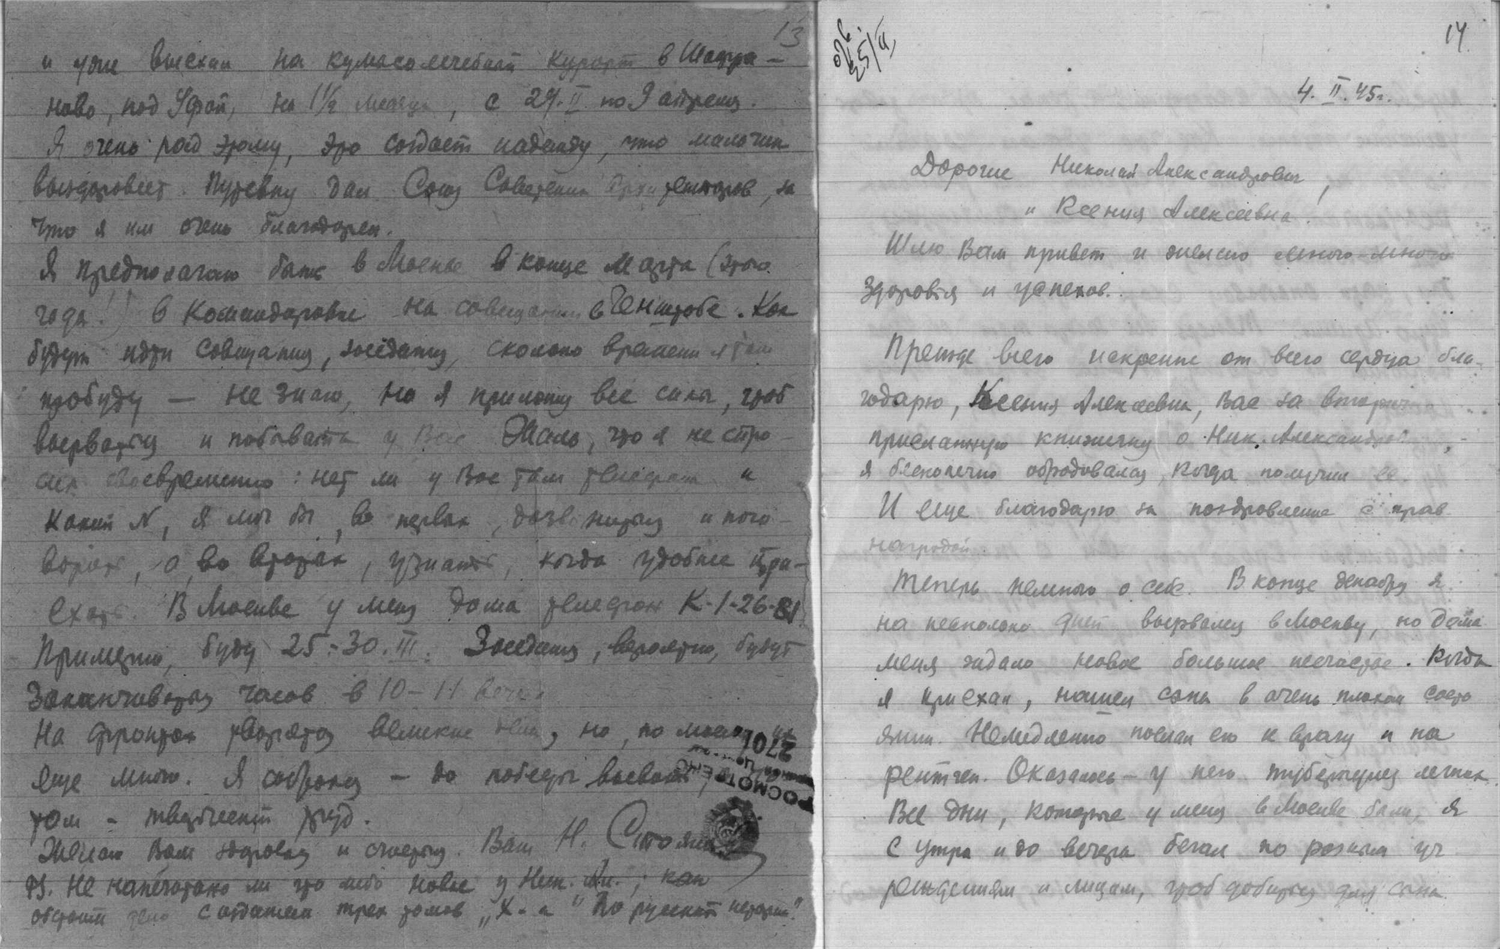 13
и уже выехал на кумысолечебный курорт в Шафра-
ново, под Уфой, на 1½ месяца, с 24.II по 9 апреля.
Я очень рад этому, это создает надежду, что мальчик
выздоровеет. Путевку дал Союз Советских Архитекторов, за
что я им очень благодарен.
Я предполагаю быть в Москве в конце Марта (этого
года!) в Командировке на совещании в Генштабе. Как
будут идти совещания, заседания, сколько времени я там
пробуду — не знаю, но я приложу все силы, чтоб
вырваться и побывать у Вас. Жаль, что я не спро-
сил своевременно: нет ли у Вас там телефона и
какой №, я мог бы, во первых, дозвониться и пого-
ворить, а, во вторых, узнать, когда удобнее при-
ехать. В Москве у меня дома телефон К-1-26-81.
Примерно, буду 25-30.III. Заседания, вероятно, будут
заканчиваться часов в 10-11 веч.
На фронтах творятся великие дела, но, по моему,
еще много. Я собираюсь — до победы воевать, а
там - творческий труд.
Желаю Вам здоровья и счастья. Ваш Н.
PS. Не напечатано ли что либо новое у Ник. Ал.; как
обстоит дело с изданием трех томов „Х-а „По русской истории".
РОСМОТРЕНО
2701
25/II
14
4.II.45г.
Дорогие Николай Александрович,
и Ксения Алексеевна!
Шлю Вам привет и желаю много-много
здоровья и успехов.
Прежде всего искренне от всего сердца бла-
годарю, Ксения Алексеевна, Вас за вторую
присланную книжечку о Ник. Александровиче,
я бесконечно обрадовался, когда получил ее.
И еще благодарю за поздравление с прав.
наградой.
Теперь немного о себе. В конце декабря я
на несколько дней вырвался в Москву, но дома
меня ждало новое большое несчастье. Когда
я приехал, нашел сына в очень плохом состо-
янии. Немедленно послал его к врачу и на
рентген. Оказалось - у него туберкулез легких.
Все дни, которые у меня в Москве были, я
с утра и до вечера бегал по разным уч-
реждениям и лицам, чтоб добиться для сына